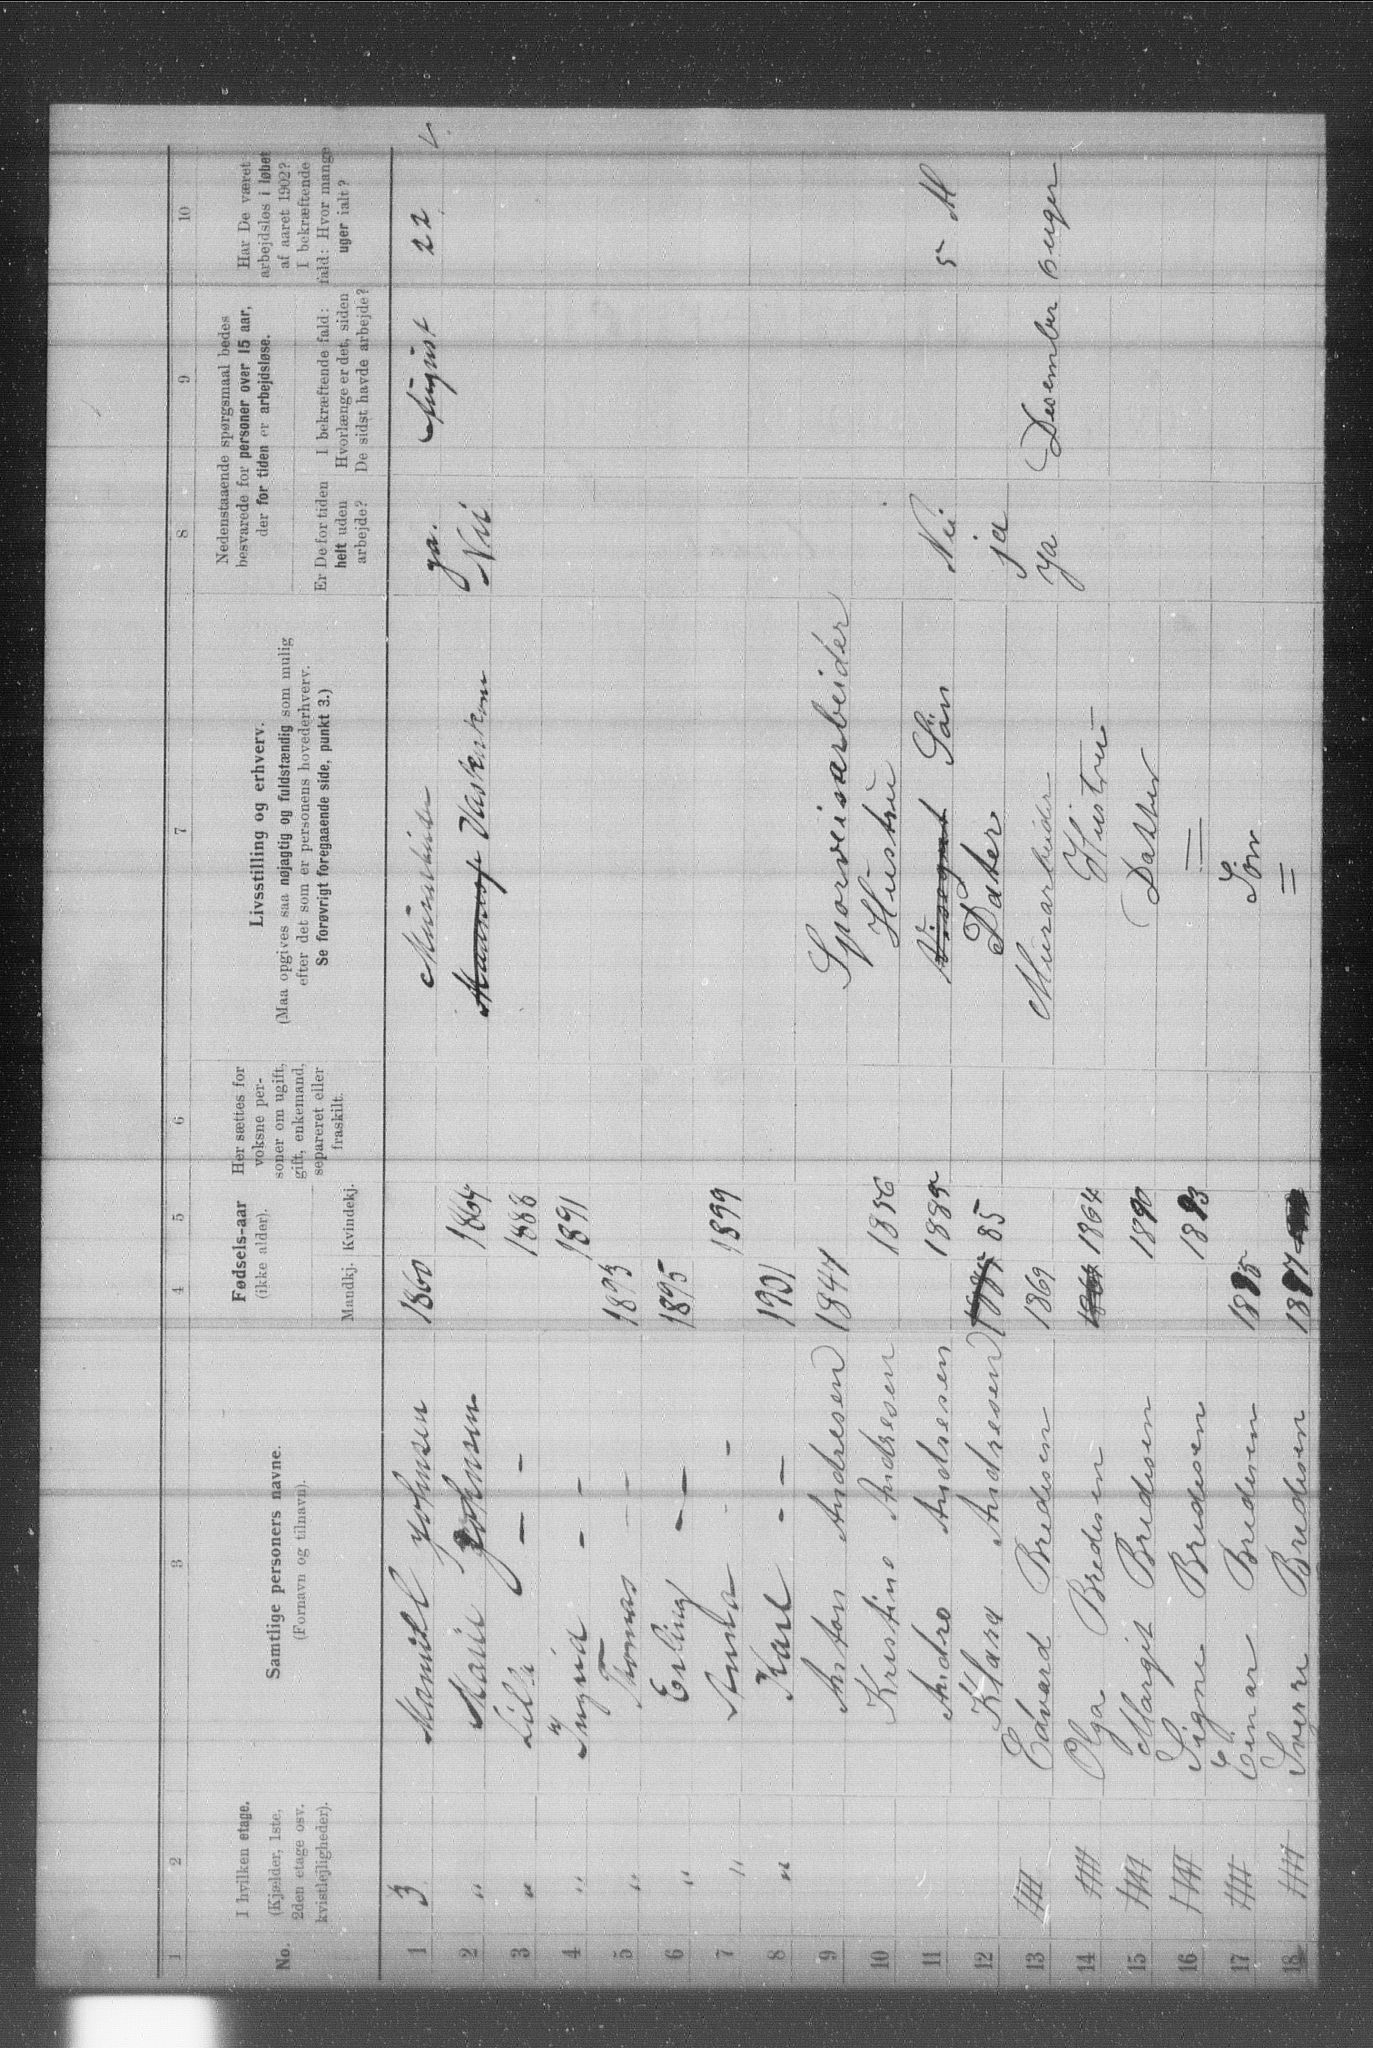 1 2 3 4 5 6 7 8 9 10
No.
I hvilken etage.
(Kjælder, 1ste,
2den etage osv.
kvistlejligheder).
Samtlige personers navne.
(Fornavn og tilnavn).
Fødsels-aar
(ikke alder).
Mandkj. Kvindekj.
Her sættes for
voksne per-
soner om ugift,
gift, enkemand,
separeret eller
fraskilt.
Livsstilling og erhverv.
(Maa opgives saa nøjagtig og fuldstændig som mulig
efter det som er personens hovederhverv.
Se forøvrigt foregaaende side, punkt 3.)
Nedenstaaende spørgsmaal bedes
besvarede for personer over 15 aar,
der for tiden er arbejdsløse.
Er De for tiden
helt uden
arbejde?
I bekræftende fald:
Hvorlænge er det, siden
De sidst havde arbejde?
Har De været
arbejdsløs i løbet
af aaret 1902?
I bekræftende
fald: Hvor mange
uger ialt?
1 3 Johnsen 1860 ja. August 22
2 " Marie Johnsen 1864 Nei
3 " — - 1888
4 " Ingrid - - 1891
5 " Thomas — — 1893
6 " Erling — — 1895
7 " Anna - - 1899
8 " Karl - — 1901
9 Anton Andresen 1844 Sporveisarbeider
10 Kristine Andresen 1856 Hustru
11 Andro Andresen 1885 Sön Nei 5 M
12 Klara Andresen 85 Dater ja
13 Edvard Bredesen 1869 Murarbeider ja Desember 6 uger
14 Olga Bredesen 1864 Hustru
15 Margit Bredesen 1890 Datter
16 Signe Bredesen 1893 =
17 Einar Bredesen 1885 Sön
18 Sverre Bredesen 1887 =